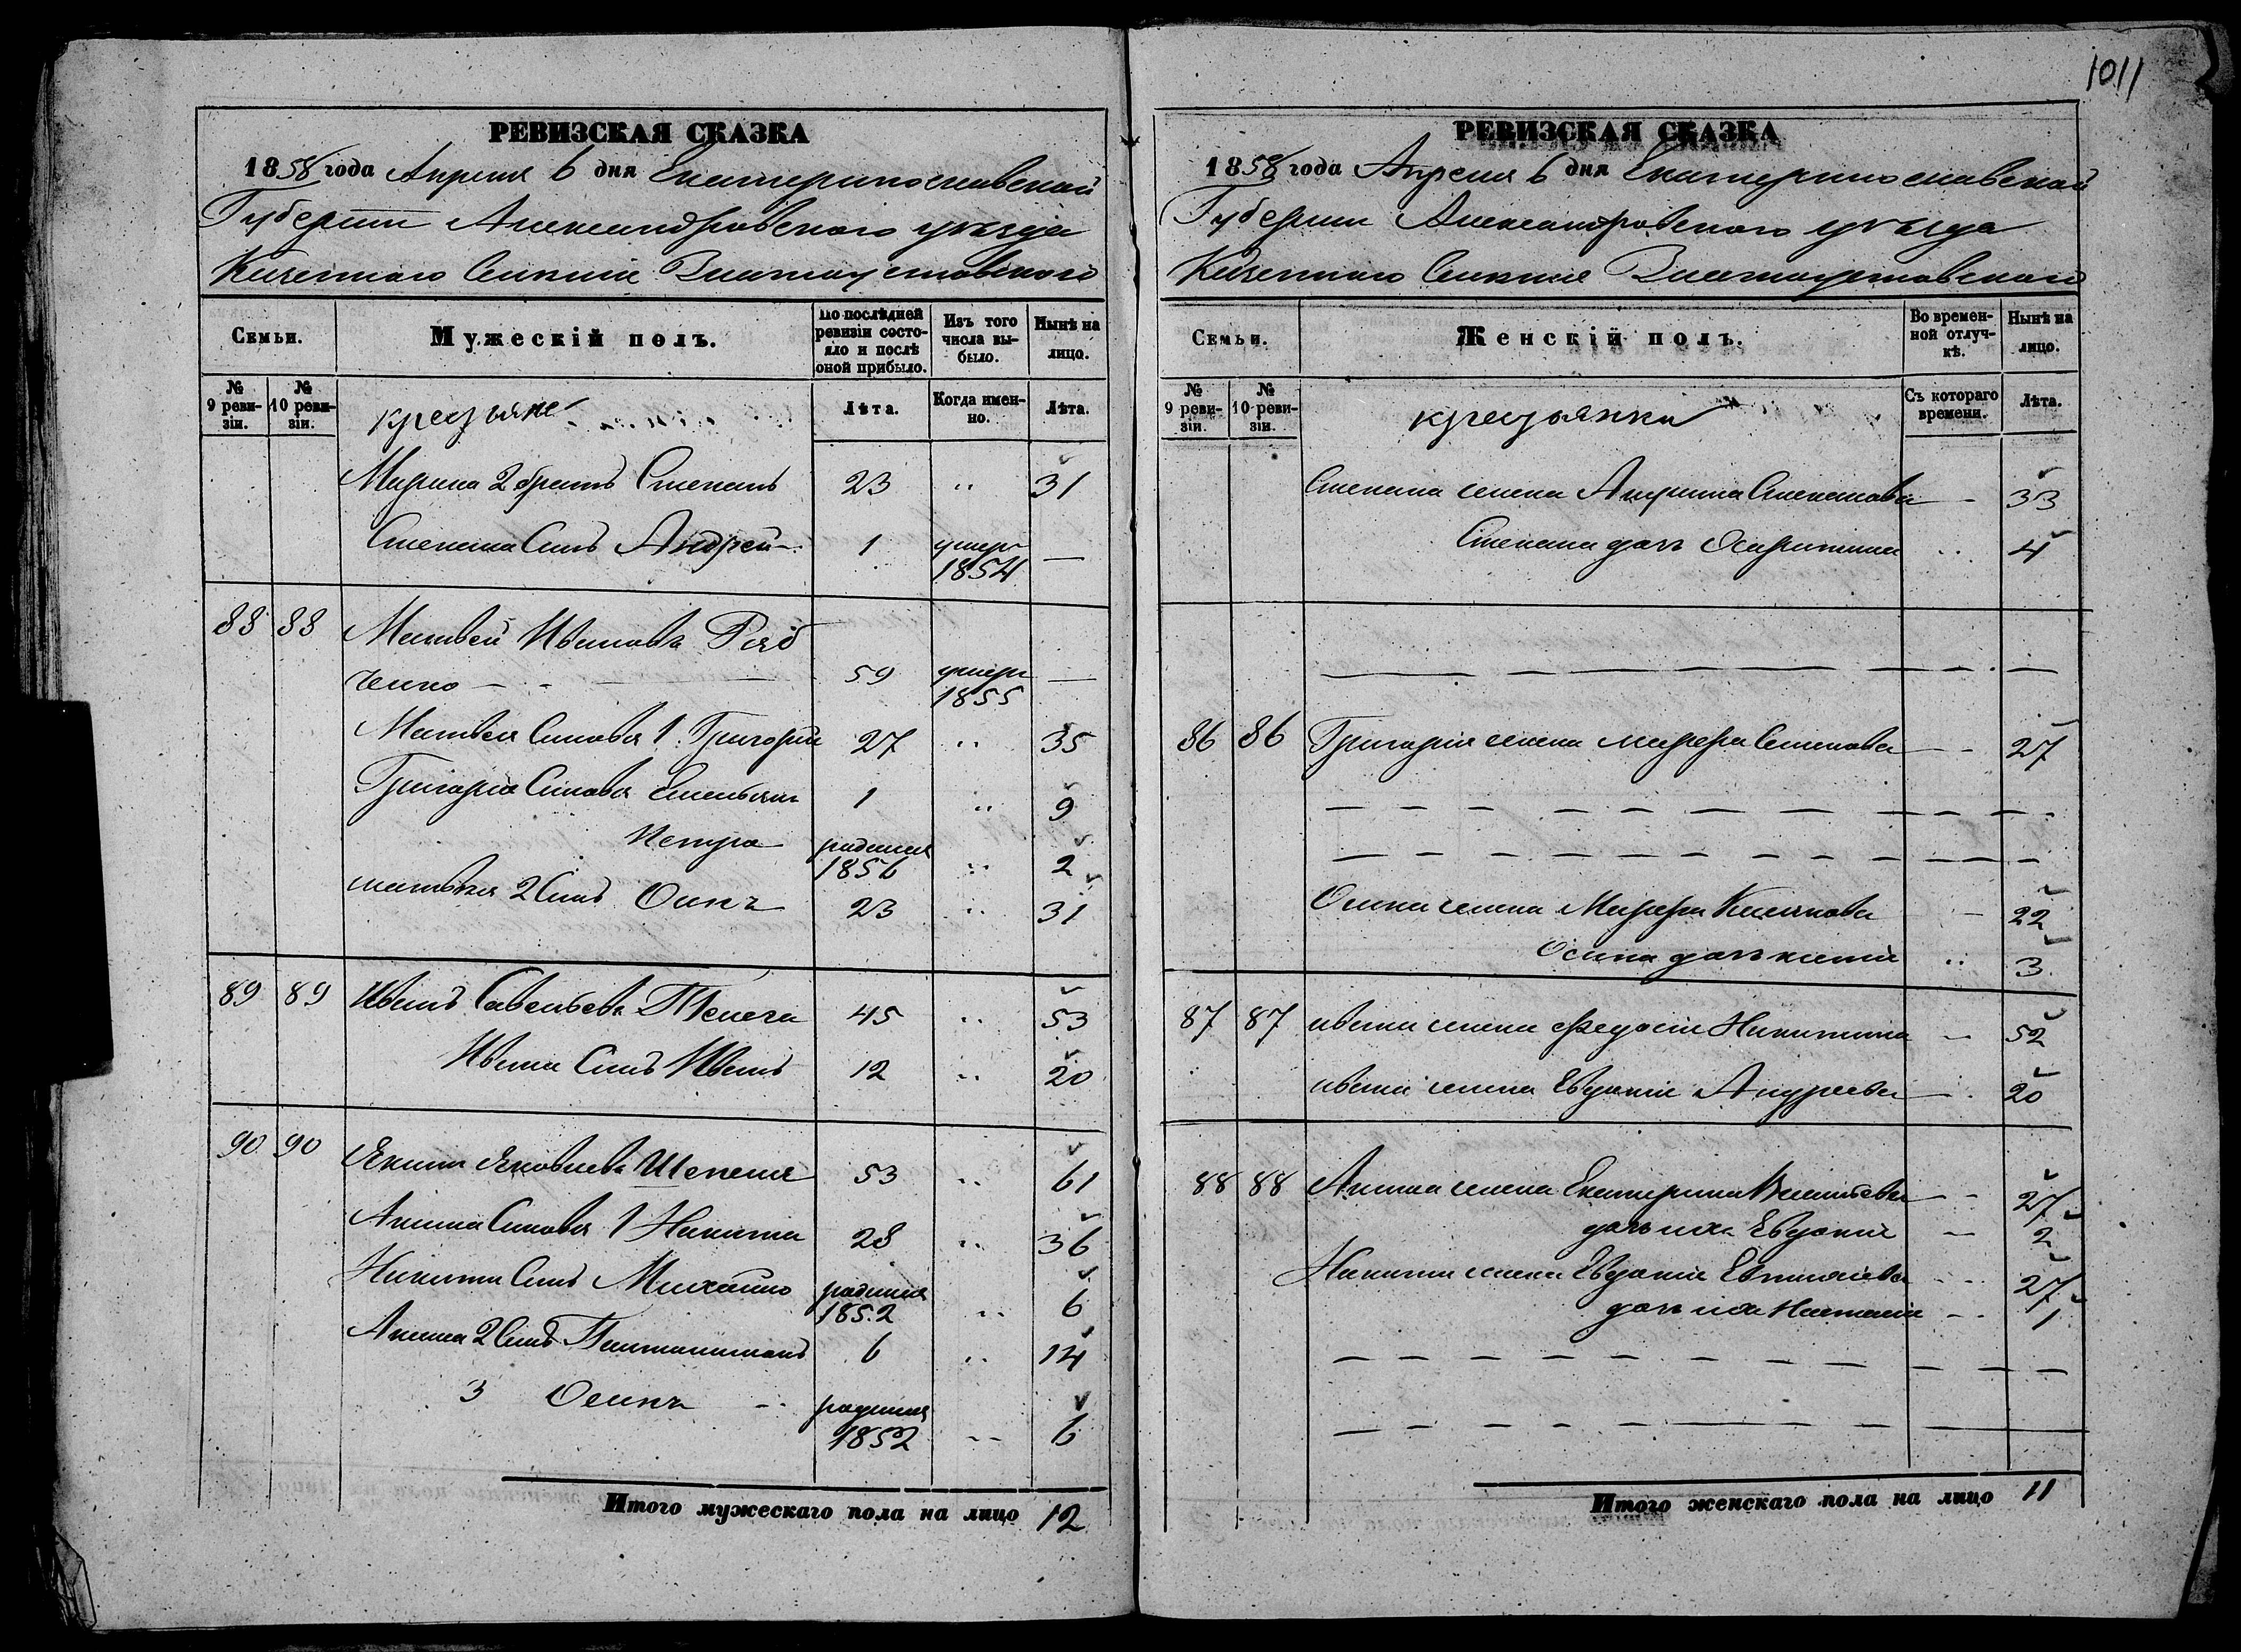 1011
РЕВИЗСКАЯ СКАЗКА
1858 года Апреля 6 дня Екатеринославской
Губернии Александровского уезда
Казенного Селения Златоустовского
Семьи.
Мужескій полъ.
По послѣдней ревизіи состояло и послѣ оной прибыло.
Изъ того числа выбыло.
Нынѣ на лицо.
№ 9 ревизіи.
№ 10 ревизіи.
крестьяне
Лѣта.
Когда именно.
Лѣта.
2 братъ Степанъ 23 31
Степана Сынъ Андрей 1 умеръ 1854 —
88 88 Матвей Ивановъ Ряб
ченко — 59 умеръ 1855 —
Матвея Сыновья 1. Григорій 27 35
Григорія Сыновья Емельянъ 1 9
Петра родился 1856 2
матвея 2 Сынъ Осипъ 23 31
89 89 Иванъ Савельевъ 45 53
Ивана Сынъ Иванъ 12 20
90 90 Яковлевъ Шепеля 53 61
Акима Сыновья 1 Никита 28 36
Никиты Сынъ Михайло родился 1852 6
Акима 2 Сынъ 6 14
3 Осипъ родился 1852 6
Итого мужескаго пола на лицо 12
РЕВИЗСКАЯ СКАЗКА
1858 года Апреля 6 дня Екатеринославской
Губернии Александровского уезда
Казенного Селения Златоустовского
Семьи.
Женскій полъ.
Во временной отлучкѣ.
Нынѣ на лицо.
№ 9 ревизіи.
№ 10 ревизіи.
крестьянки
Съ котораго времени.
Лѣта.
Степана жена Степанова 33
Степана дочь 4
86 86 Григорія жена 27
Осипа жена 22
Осипа дочь 3
87 87 ивана жена федосія Никитина 52
ивана жена Евдокія Андреева 20
88 88 Акима жена Екатерина 27
дочь ихъ Евдокія 2
Никиты жена Евдокія 27
дочь ихъ Наталія 1
Итого женскаго пола на лицо 11